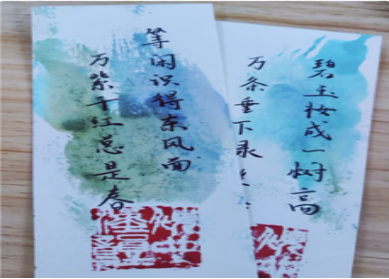 等闲识得东风面
万紫千红总是春
碧玉妆成一树高
万条垂下